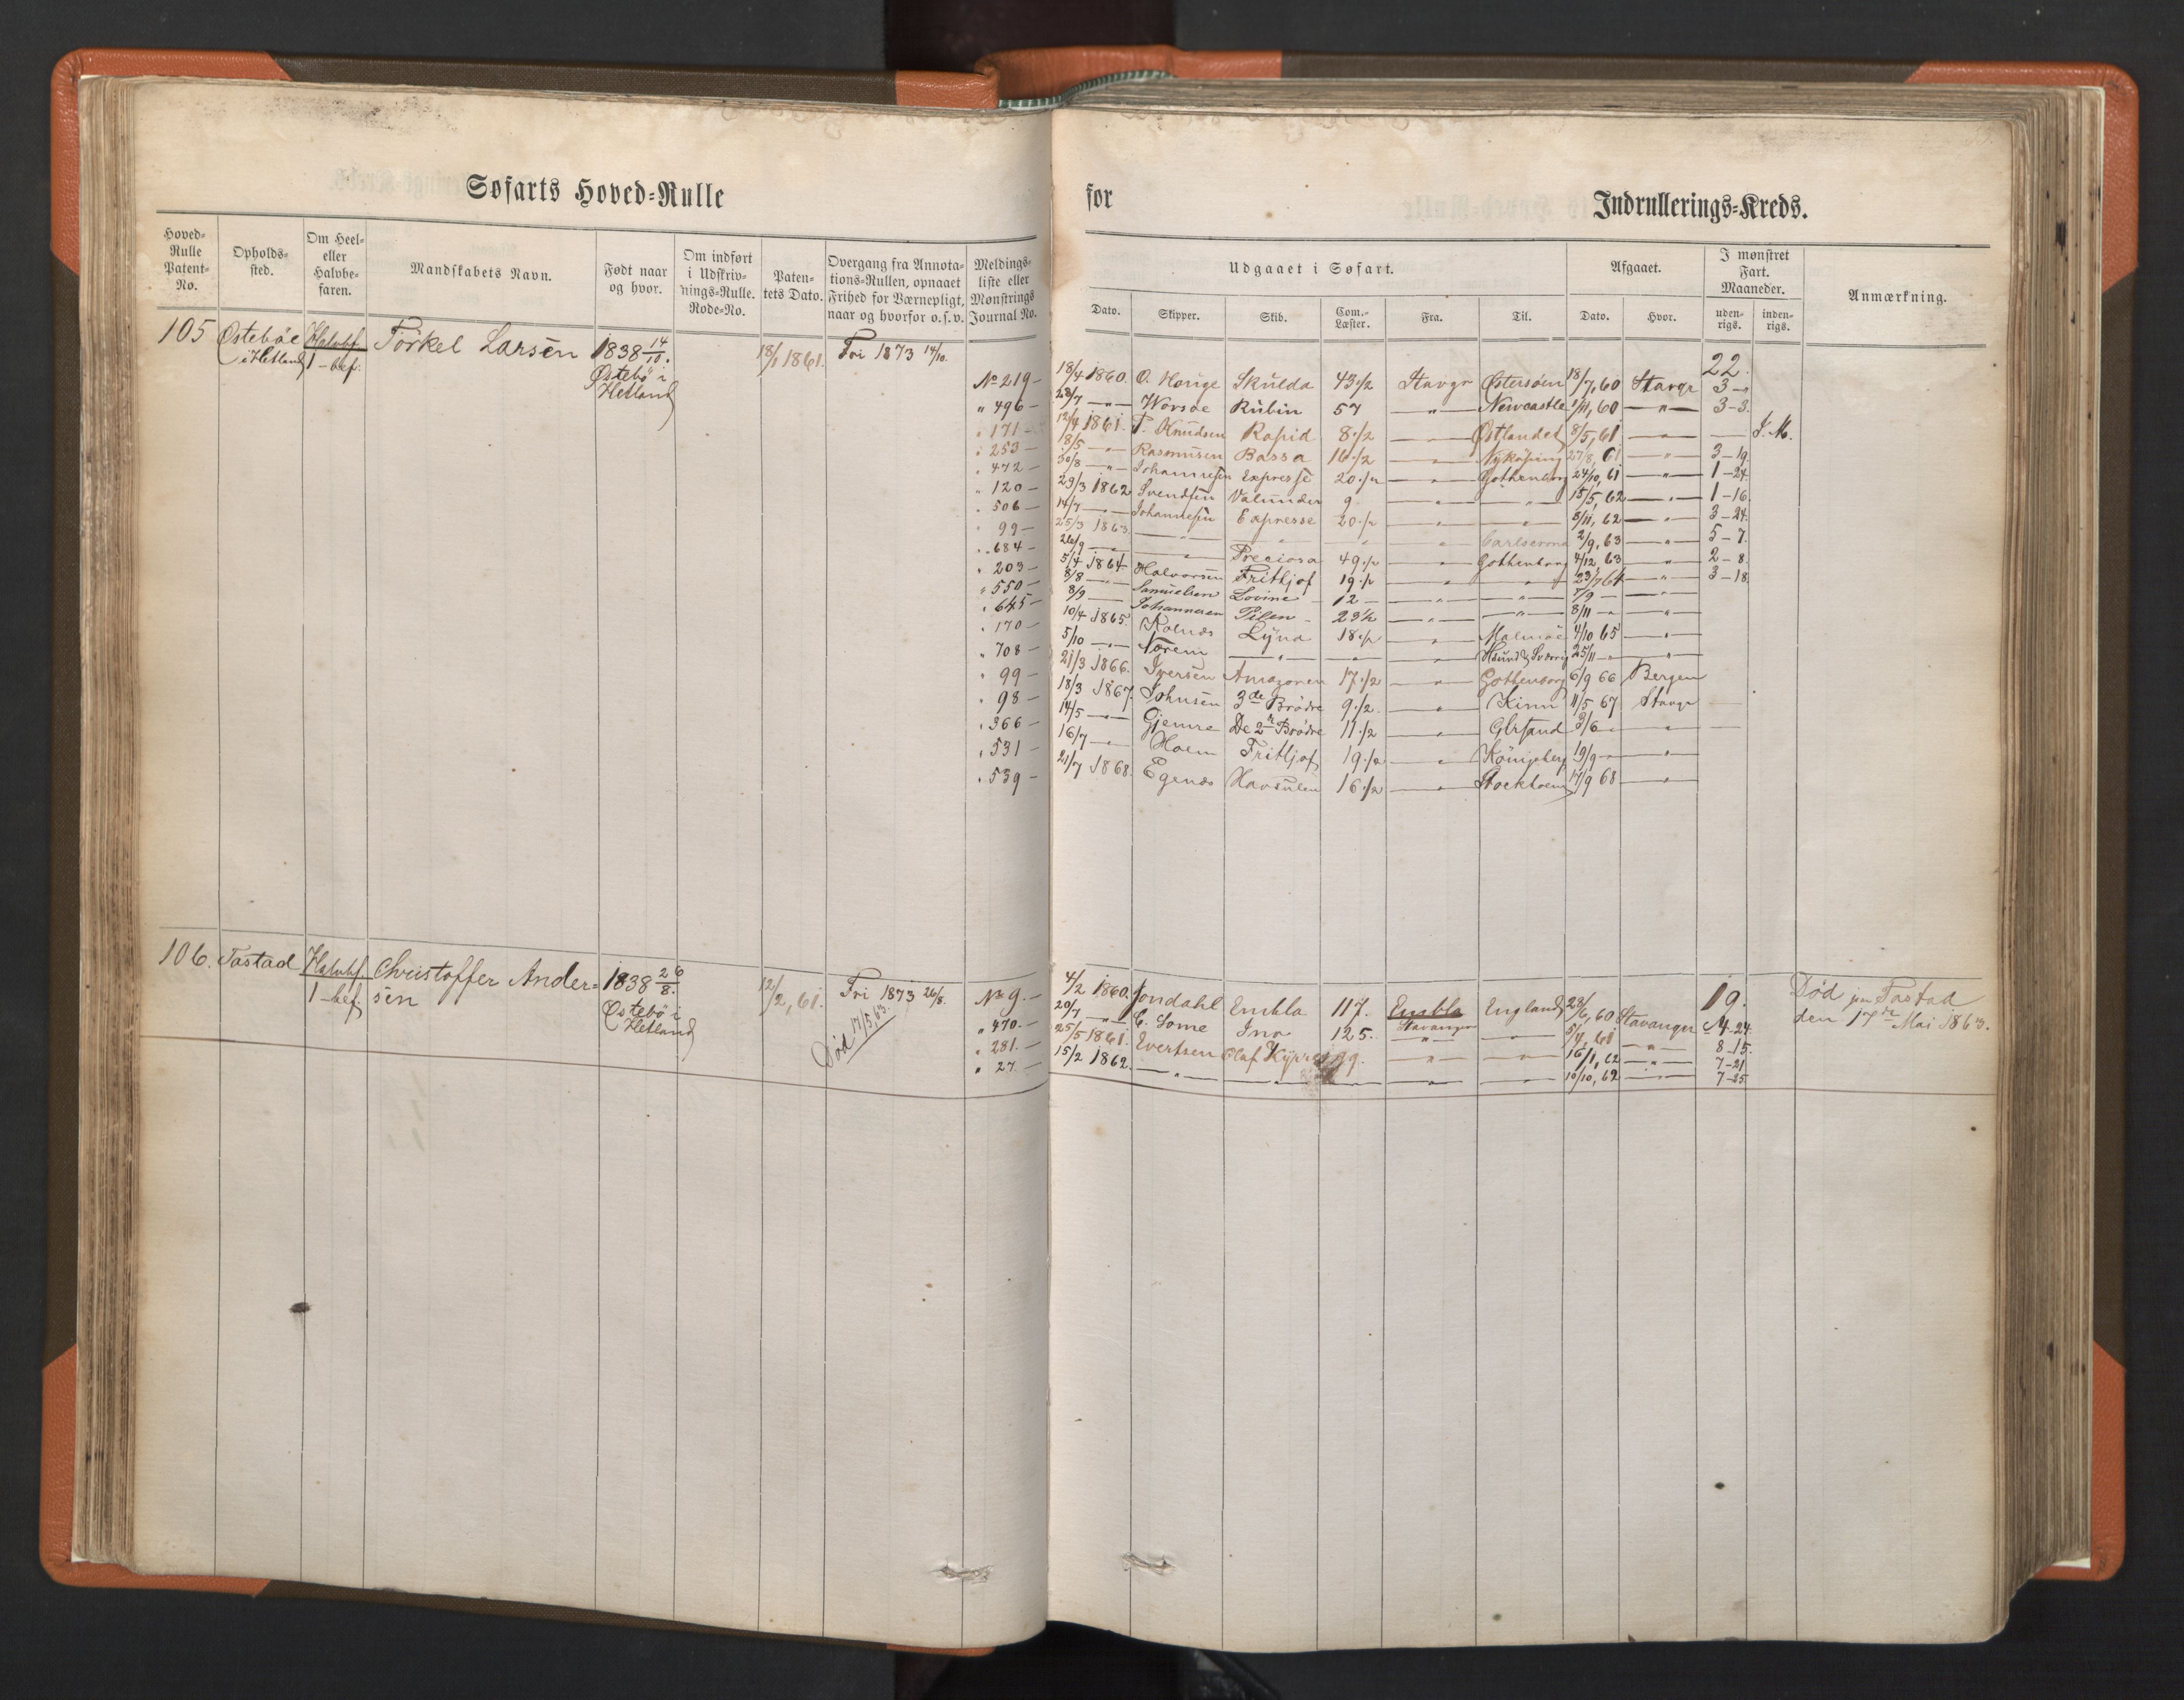 Søfarts Hoved-Rulle for Indrullerings-Kreds.
Hoved-Rulle Patent-No.
Opholds-sted.
Om Heel- eller Halvbe-faren.
Mandskabets Navn.
Født naar og hvor.
Om indført i Udskriv-nings-Rulle. Rode-No.
Paten-tets Dato.
Overgang fra Annota-tions-Rullen, opnaaet Frihed for Værnepligt, naar og hvorfor o.s.v.
Meldings-liste eller Mønstrings Journal No.
Udgaaet i Søfart.
Dato. Skipper. Skib. Com.-Læster. Fra. Til.
Afgaaet.
Dato. Hvor.
I mønstret Fart. Maaneder.
uden-rigs. inden-rigs.
Anmærkning.
105 Østebøe i Hetland Halvbf. 1-bef. Torkel Larsen 1838 14/10. Østebø i Hetland 18/1 1861. Fri 1873 14/10.
22.
No 219 - 18/4 1860. O. Houge Skulda 43 1/2 Stavgr Østersøen 18/7, 60 Stavgr 3 -
" 496 - 28/7 — " — Worsøe Rubin 57 — " — Newcastle 1/11, 60 — " — 3 - 3.
" 171 - 12/4 1861. T. Knudsen Rapid 8 1/2 — " — Østlandet 8/5, 61 — " — I. M.
" 253 - 18/5 — " — Rasmussen Bassa 16 1/2 — " — Nykøping 27/8, 61 — " — 3 - 19
" 472 - 30/8 — " — Johannesen Expresse 20 1/2 — " — Gothenborg 24/10, 61 — " — 1 - 24
" 120 - 29/3 1862 Svendsen Valunder 9 — " — " — 15/5, 62 — " — 1 - 16.
" 506 - 14/7 — " — Johannesen Expresse 20 1/2 — " — " — 8/11, 62 — " — 3 - 24.
" 99 - 25/3 1863. — " — " — " — " — Carlscrona 2/9, 63 — " — 5 - 7.
" 684 - 26/9 — " — " — Preciosa 49 1/2 — " — Gothenborg 4/12, 63 — " — 2 - 8.
" 203 - 5/4 1864 Halvorsen Fritljof 19 1/2 — " — " — 23/7 64 — " — 3 - 18
" 550 - 8/8 — " — Samuelsen Lovine 12 — " — " — 7/9 — " —
" 645 - 8/9 — Johannesen Pilen 23 1/2 — " — " — 8/11 — " — " —
" 170 - 10/4 1865. Kolnæs Lyna 18 1/2 — " — Malmøe 4/10 65 — " —
" 708 - 5/10 — " — Norem — " — " — " — Sverrig 25/11 — " — " —
" 99 - 21/3 1866. Iversen Amazonen 17 1/2 — " — Gottenborg 6/9 66 Bergen
" 98 - 18/3 1867. Johnsen 3de Brødre 9 1/2 — " — Kinn 11/5 67 Stavgr
" 366 - 14/5 — " — Gjemre De 2r Brødre 11 1/2 — " — 3/6 — " — " —
" 531 - 16/7 — " — Holm Fritljof 19 1/2 — " — Königsberg 19/9 — " — " —
" 539 - 21/7 1868. Egenæs Havsulen 16 1/2 — " — Stockholm 17/9 68 — " —
106. Tastad Halvbf. 1-bef. Christoffer Ander=sen 1838 26/8. Østebø i Hetland 12/2, 61. Fri 1873 26/8.
Død 17/5, 63.
19.
No 9. - 4/2 1860. Jondahl Embla 117. Embla Stavanger England 28/6, 60 Stavanger 4 - 24.
" 470. - 20/7 — " — C. Some Ino 125. — " — " — 5/4, 61 — " — 8 - 15.
" 281. - 25/5 1861. Evertsen Olaf Kyrre 99. — " — " — 16/1, 62 — " — 7 - 21
" 27. - 15/2 1862. — " — " — " — " — " — 10/10, 62 — " — 7 - 25
Død paa Tastad
den 17de Mai 1863.